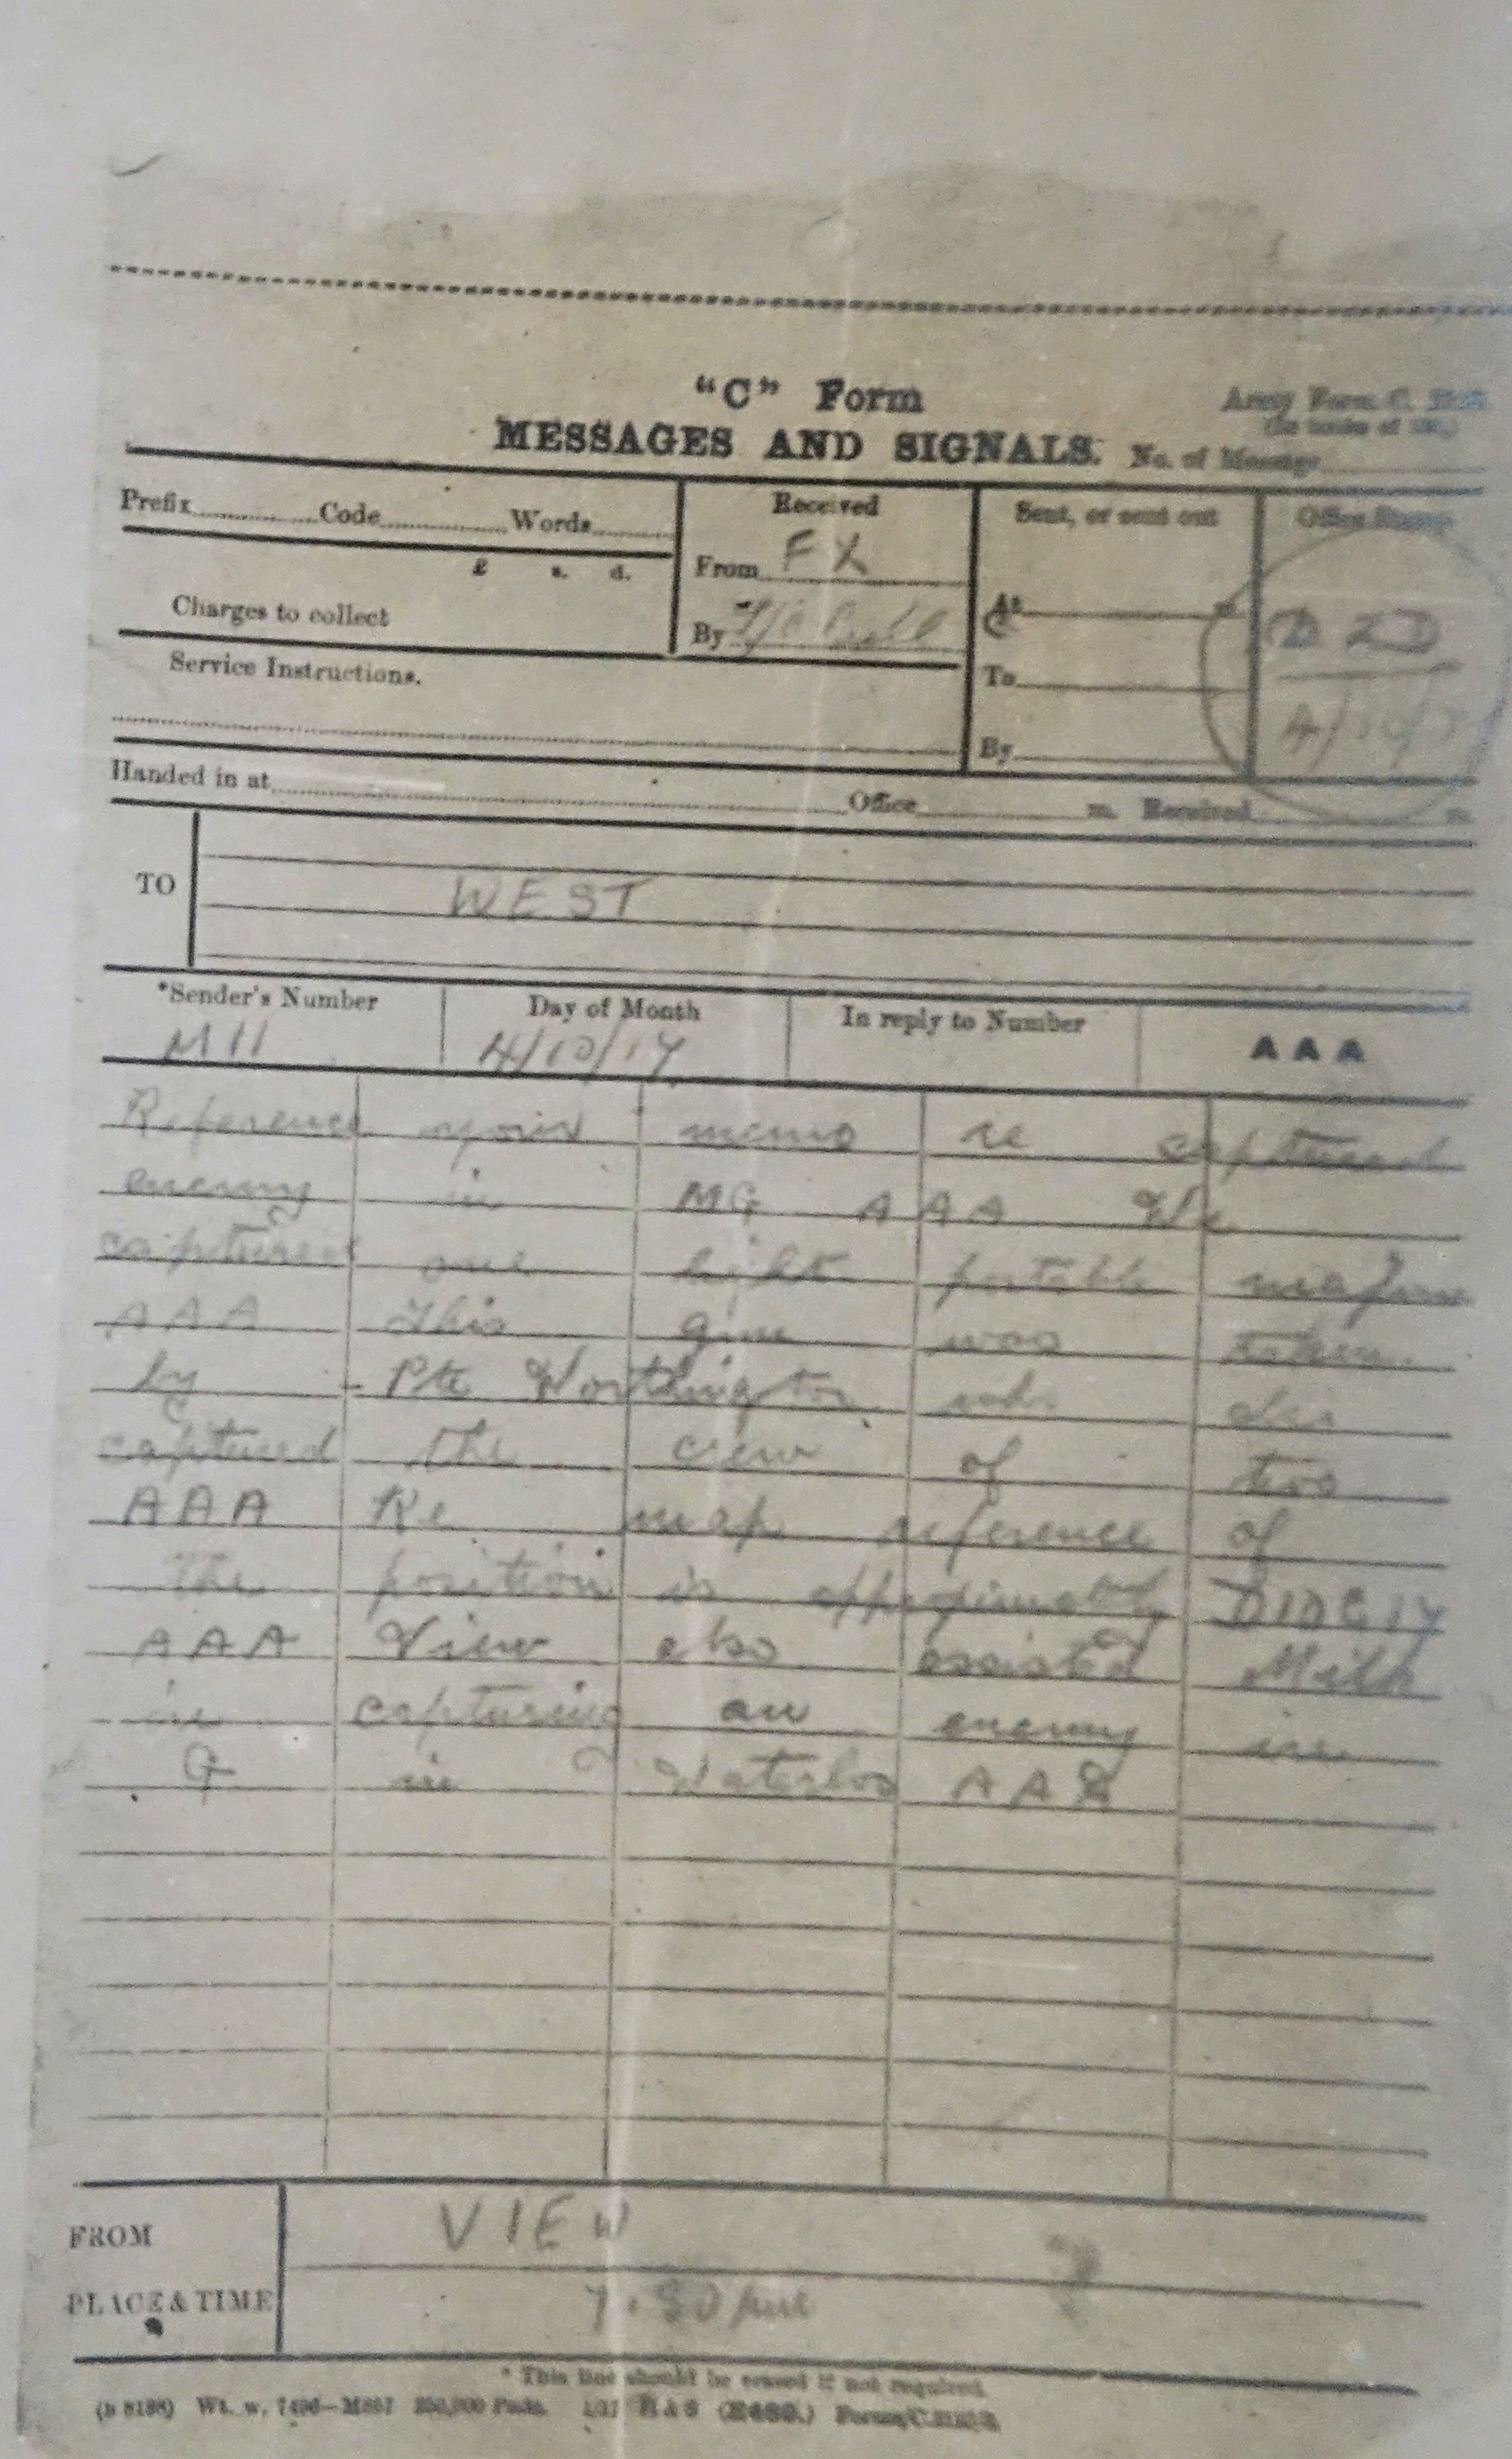 "C" Form
MESSAGES AND SIGNALS.
Army Form C.
No. of Message
Prefix Code Words
Received
Sent, or sent out
Office Stamp
£ s. d.
From FX
At
Charges to collect
By
D ZD
Service Instructions.
To
4/10/
By
Handed in at Office m. Received m.
TO WEST
*Sender's Number Day of Month In reply to Number
M11 4/10/17 AAA
Reference your memo re captured
enemy in MG AAA We
captured one light portable
AAA This gun was taken
by Pte Worthington who
captured the crew of two
AAA Re map reference of
The position is approximately D1DC17
AAA View also assisted
in capturing an enemy m
G in Waterloo AAA
FROM VIEW
PLACE & TIME 7.30 pm
* This line should be erased if not required.
350,000 Pads.